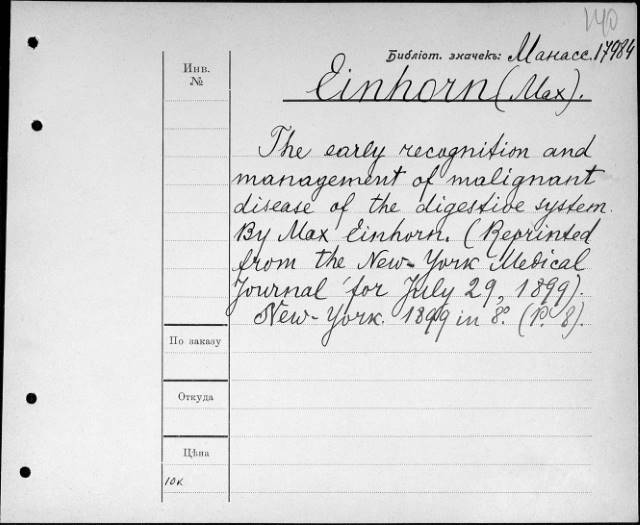 140
Библіот. значекъ: Манасс. 17984
Инв.
№
Einhorn (Max).
The early recognition and
management of malignant
disease of the digestive system.
By Max Einhorn. (Reprinted
from the New-York Medical
Journal for July 29, 1899).
New-York. 1899 in 8º. (P. 8).
По заказу
Откуда
Цѣна
10 к